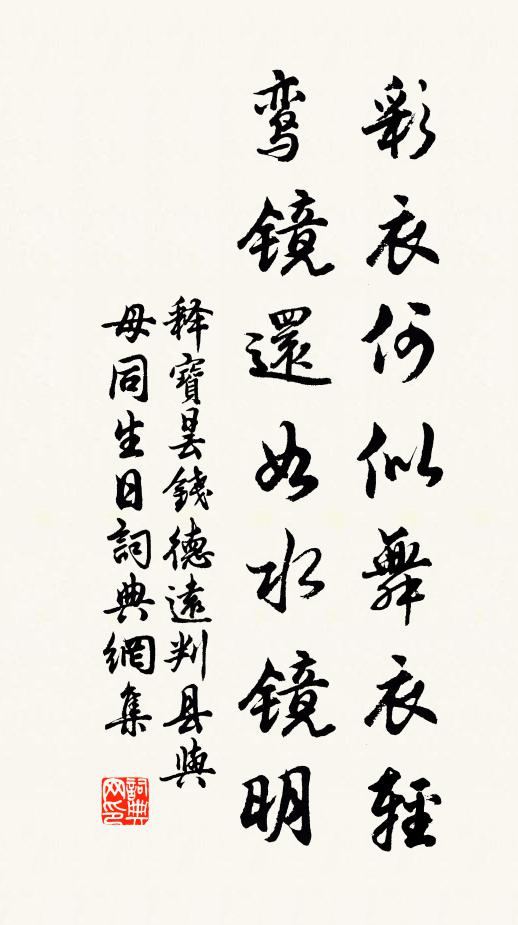 彩衣何似舞衣輕
鸾镜還如水镜明
释寶昙錢德遠判县與
母同生日詞典網集
詞典
网印